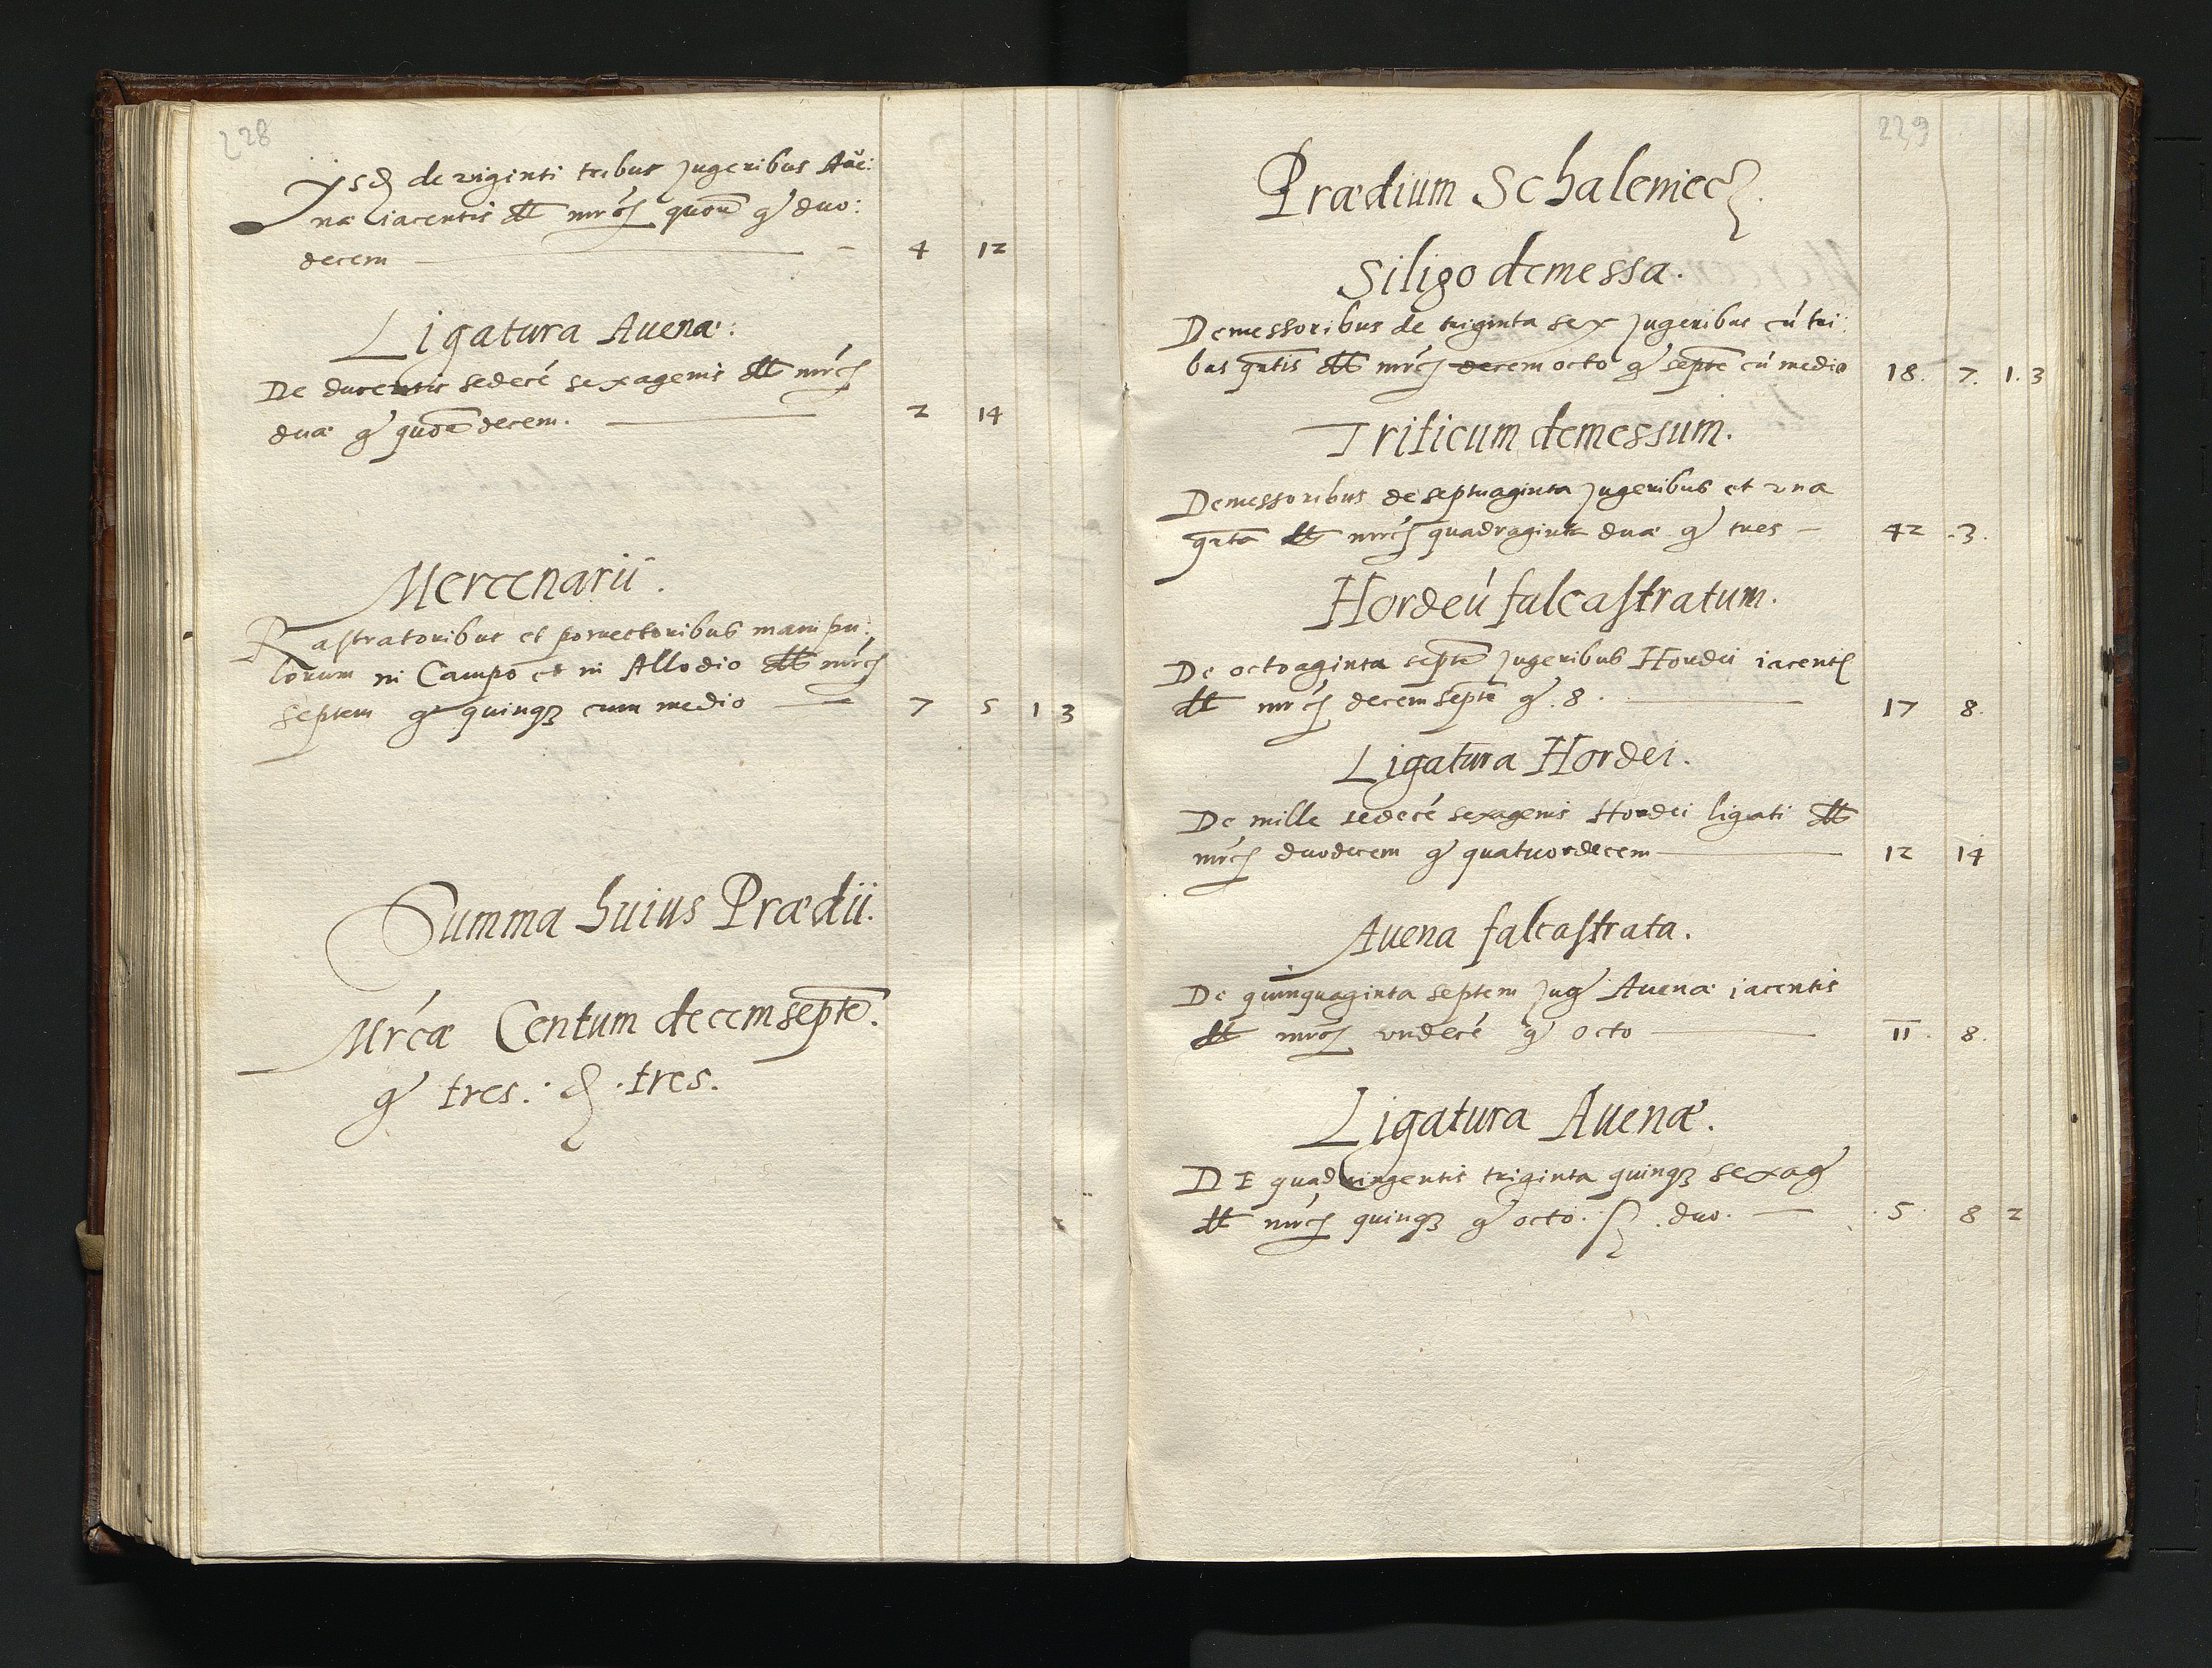 228
Ysđ de viginti tribus Jugeribus Aūe:
na iacentis dtt mrcȝ quoūe gͬ duo:
decem — 4 12
Ligatura Auenæ:
De ducentis sedecé sexagenis dtt mrcȝ
duæ gͬ quoēdecem. — 2 14
Mercenarii.
Rastratoribus et porrectoribus manipu:
lorum in Campo et in Allodio dtt mrcȝ
septem gͬ quinqȝ cum medio — 7 5 1 3
Summa huius Prædii.
Mrcæ Centum decemseptē.
gͬ tres. đ. tres.
229
Prædium Schalemecȝ.
Siligo demessa.
Demessoribus de triginta sex Jugeribus cú tri:
bus qrtis dtt mrcȝ decemocto gͬ septē cú medio 18. 7. 1. 3
Triticum demessum.
Demessoribus de septuaginta Jugeribus et vna
qrta dtt mrcȝ quadraginta duæ gͬ tres — 42 .3.
Hordeú falcastratum.
De octoaginta septē Jugeribus Hordei iacentȝ
dtt mrcȝ decemseptē gͬ. 8. — 17 8.
Ligatura Hordei.
De mille sedecé sexagenis Hordei ligati dtt
mrcȝ duodecem gͬ quatuordecem — 12 14
Auena falcastrata.
De quinquaginta septem Jugͬ Auenæ iacentis
dtt mrcȝ vndecé gͬ octo — 11. 8.
Ligatura Auenæ.
DE quadringentis triginta quinqȝ sexagͬ
dtt mrcȝ quinqȝ gͬ octo. ß. duo. — 5. 8 2